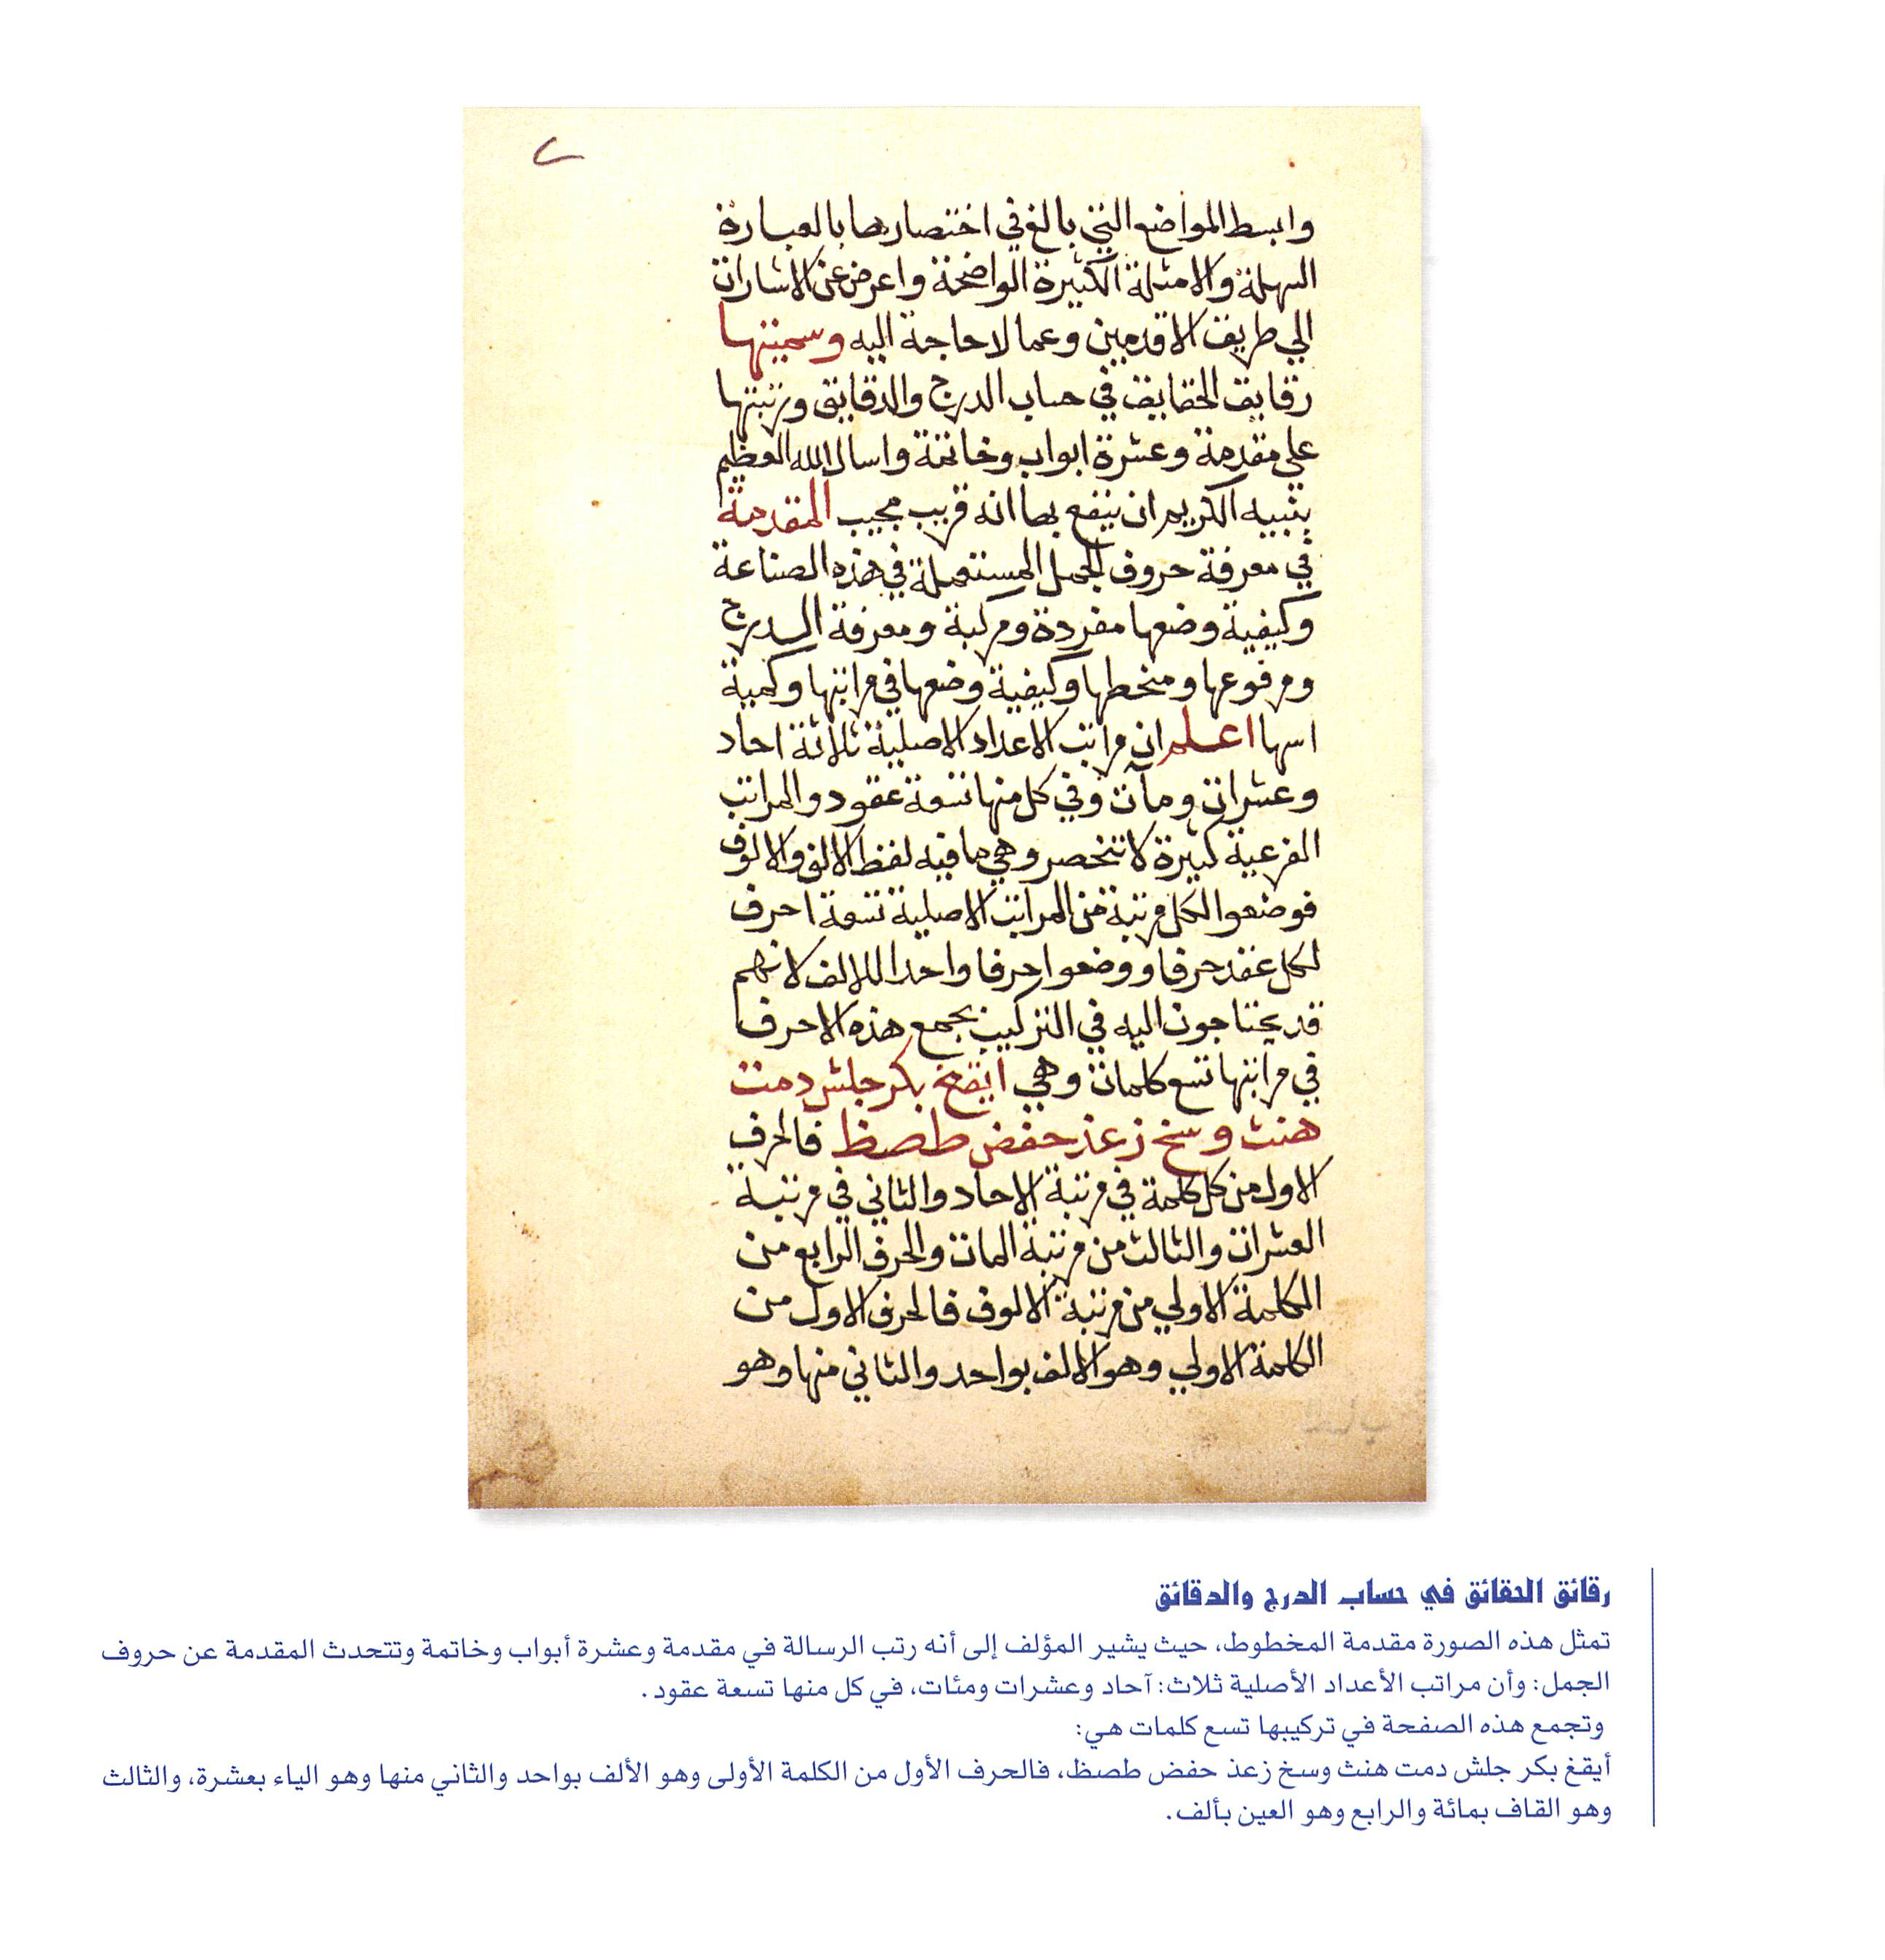 ٢
وابسط المواضع التي بالغ في اختصارها بالعبارة
السهلة والامثلة الكثيرة الواضحة واعرض عن الاشارات
الي طريق الاقدمين وعما لا حاجة اليه وسميتها
رقايق الحقايق في حساب الدرج والدقايق ورتبتها
علي مقدمة وعشرة ابواب وخاتمة واسال الله العظيم
بنبيه الكريم ان ينفع بها انه قريب مجيب المقدمة
في معرفة حروف الجمل المستعملة في هذه الصناعة
وكيفية وضعها مفردة ومركبة ومعرفة الدرج
ومرفوعها ومنحطها وكيفية وضعها في مراتبها وكمية
اسها اعلم ان مراتب الاعداد الاصلية ثلاثة احاد
وعشرات ومآت وفي كل منها تسعة عقود والمراتب
الفرعية كثيرة لا تنحصر وهي ما فيه لفظ الالف والالوف
فوضعوا لكل مرتبة من المراتب الاصلية تسعة احرف
لكل عقد حرفا ووضعوا حرفا واحدا للالف لانهم
قد يحتاجون اليه في التركيب يجمع هذه الاحرف
في مراتبها تسع كلمات وهي ايقغ بكر جلش دمت
هنث وسخ زعذ حفض طصظ فالحرف
الاول من كل كلمة في مرتبة الاحاد والثاني في مرتبة
العشرات والثالث من مرتبة المات والحرف الرابع من
الكلمة الاولي من مرتبة الالوف فالحرف الاول من
الكلمة الاولي وهو الالف بواحد والثاني منها وهو
رقائق الحقائق في حساب الدرج والدقائق
تمثل هذه الصورة مقدمة المخطوط، حيث يشير المؤلف إلى أنه رتب الرسالة في مقدمة وعشرة أبواب وخاتمة وتتحدث المقدمة عن حروف
الجمل: وأن مراتب الأعداد الأصلية ثلاث: آحاد وعشرات ومئات، في كل منها تسعة عقود.
وتجمع هذه الصفحة في تركيبها تسع كلمات هي:
أيقغ بكر جلش دمت هنث وسخ زعذ حفض طصظ، فالحرف الأول من الكلمة الأولى وهو الألف بواحد والثاني منها وهو الياء بعشرة، والثالث
وهو القاف بمائة والرابع وهو العين بألف.